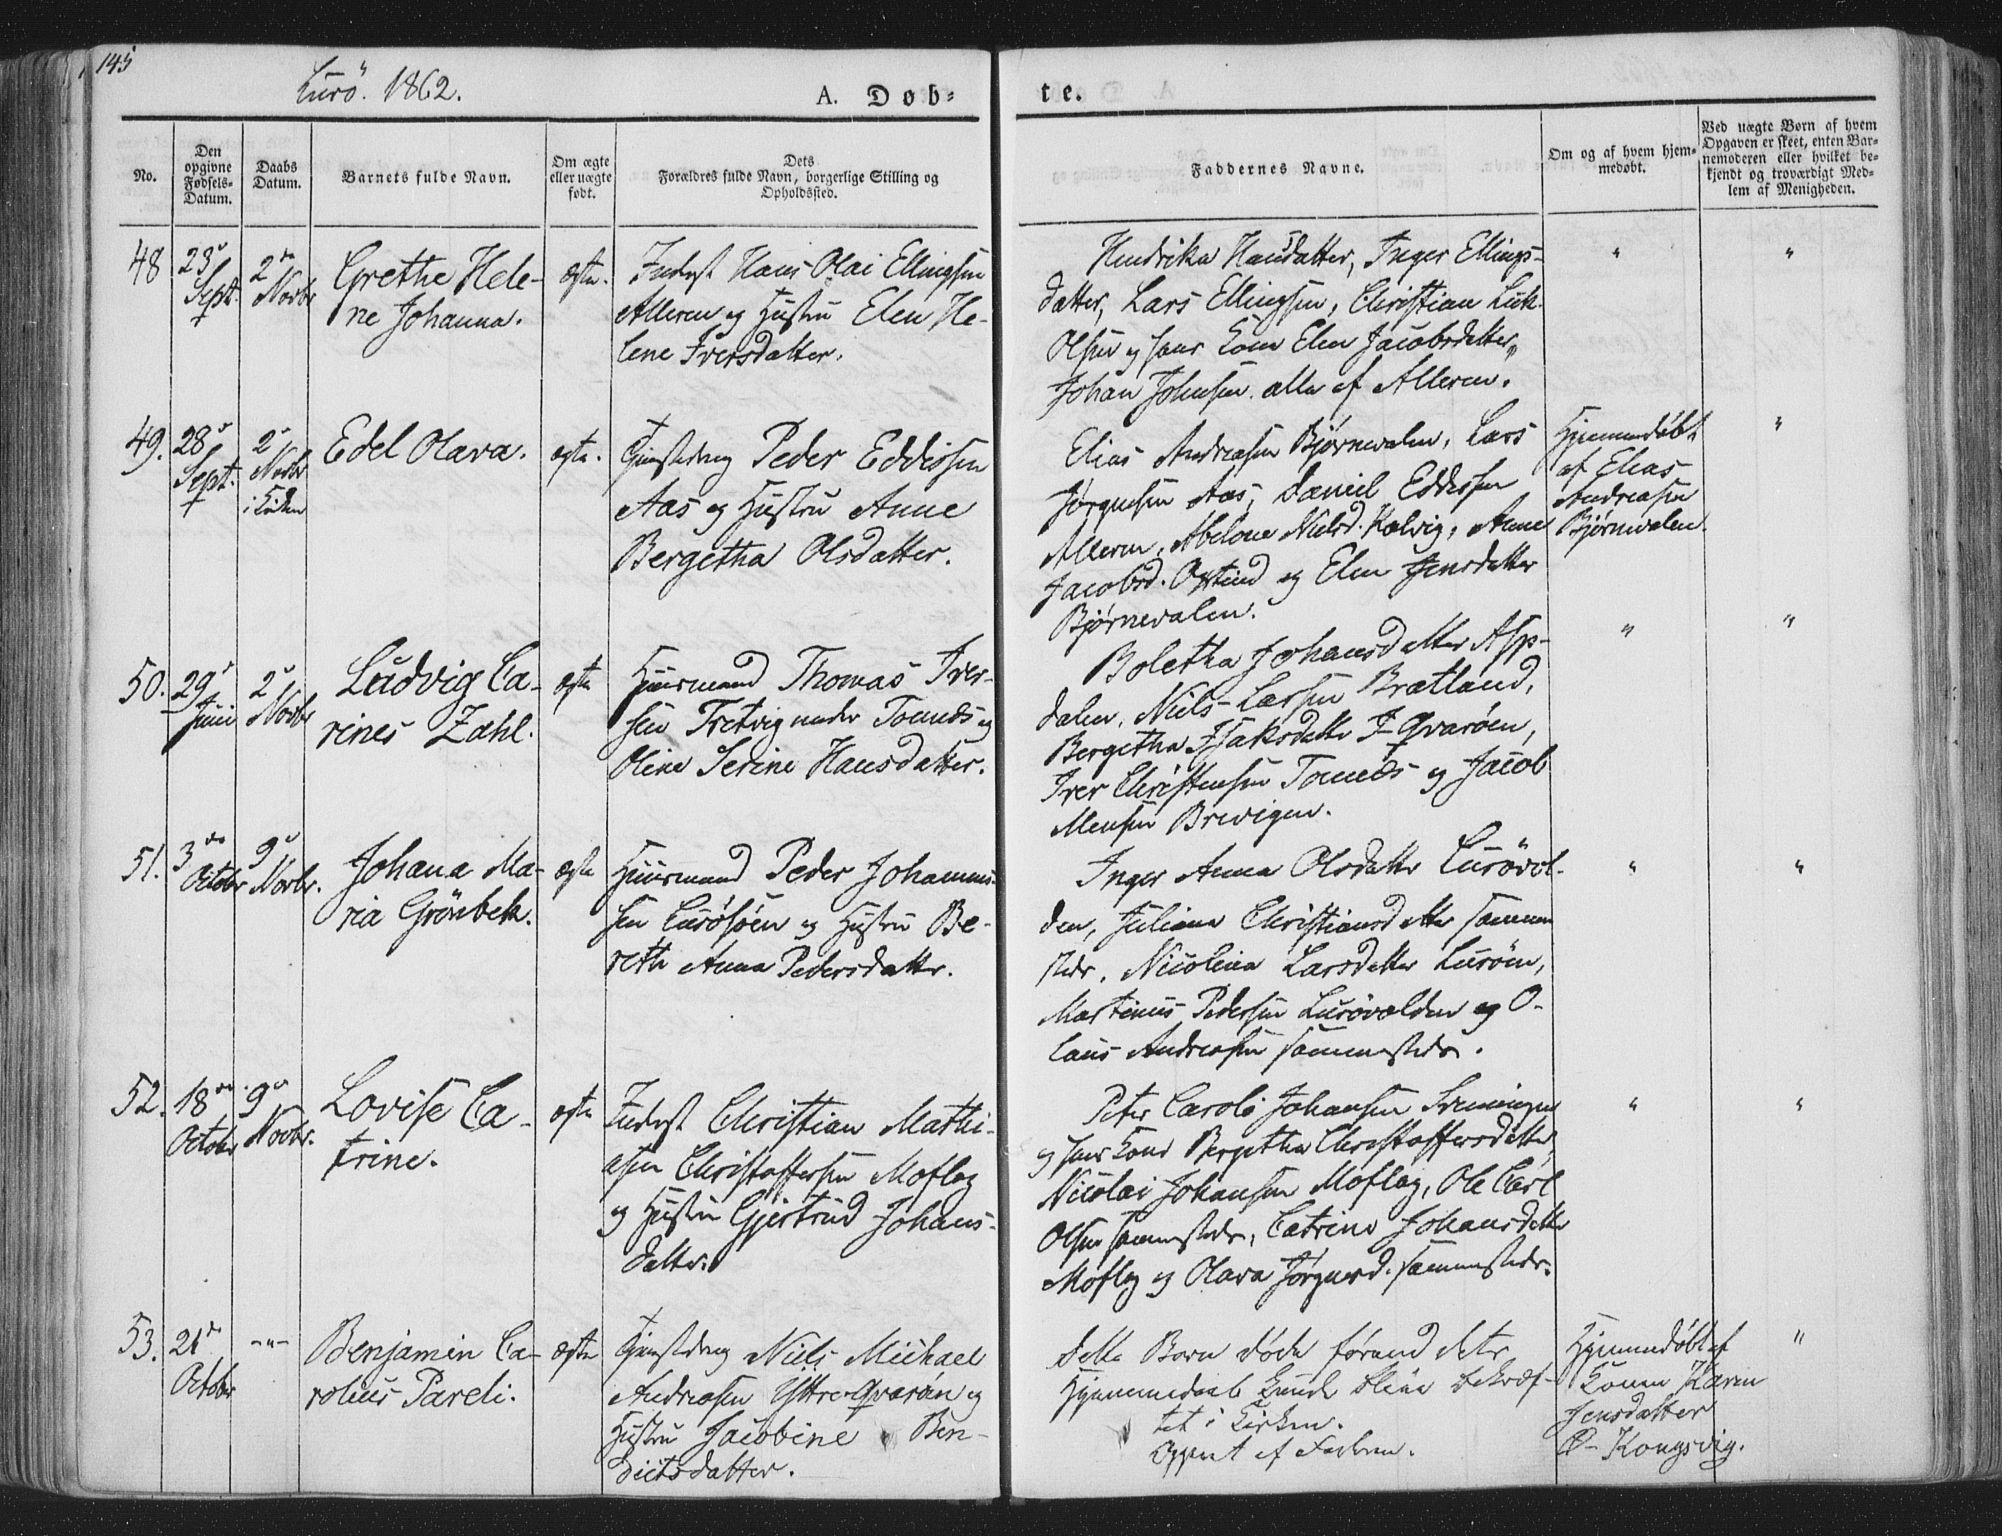 145
Lurö. 1862.
A. Døb=
te.
No.
Den opgivne Fødsels-Datum.
Daabs Datum.
Barnets fulde Navn.
Om ægte eller uægte født.
Dets Forældres fulde Navn, borgerlige Stilling og Opholdssted.
Faddernes Navne.
Om og af hvem hjemmedøbt.
Ved uægte Børn af hvem Opgaven er skeet, enten Barnemoderen eller hvilket bekjendt og troværdigt Medlem af Menigheden.
48 23 Sept. 2 Novbr
Grethe Hele-
ne Johanna.
ægte.
Inderst Hans Olai Ellingsen
Alleren og Hustru Elen He-
lene Iversdatter.
Hendrika Hansdatter, Inger Ellings-
datter, Lars Ellingsen, Christian Luk.
Olsen og hans Kone Elen Jacobsdatter,
Johan Johnsen alle af Alleren.
" "
49. 28 Sept. 2 Novbr i Kirken
Edel Olava.
ægte.
Gaardmd Peder Eddissen
Aas og Hustru Anne
Bergetha Olsdatter.
Elias Andreasen Bjørnevalen, Lars
Jørgensen Aas, Daniel Eddissen
Alleren, Abelone Nielsd. Kalvig, Anne
Jacobsd. og Elen Jensdatter
Bjørnevalen.
Hjemmedøbt
af Elias
Andreasen
Bjørnevalen.
"
50. 29 Juni 2 Novbr
Ludvig Ca-
rines Zahl.
ægte
Huusmand Thomas Iver-
sen Tretvig under Tonnes og
Oline Serine Hansdatter.
Boletha Johansdatter Asp-
dalen, Niels Larsen Brætland,
Bergetha Isaksdatter I. Qvarøen,
Iver Christensen Tonnes og Jacob
Mensen Brevigen.
" "
51. 3 Octobr 9 Novbr.
Johana Ma-
ria Grönbek.
ægte
Huusmand Peder Johannes-
sen Luröföen og Hustru Be-
reth Anna Pedersdatter.
Inger Anna Olsdatter Lurövol-
den, Juliana Christiansdatter sammen
steds, Nicolina Larsdatter Luröen,
Martinus Pedersen Lurövolden og O-
laus Andreasen sammesteds.
" "
52. 18 Octobr 9 Novbr.
Lovise Ca-
trine.
ægte
Inderst Christian Mathi-
asen Christoffersen Moflag
og Hustru Gjertrud Johans-
datter.
Peter Carolŭs Johansen Svenningen
og hans Kone Bergetha Christoffersdatter,
Nicolai Johansen Moflag, Ole Carl
Olsen sammesteds, Catrine Johansdatter
Moflag og Olava Jørgensd. sammesteds.
" "
53. 21 Octobr -"-
Benjamin Ca-
rolius Pareli.
ægte
Gaardmd Niels Michael
Andreasen Yttre-Qvarøen og
Hustru Jacobine Ben-
dictsdatter.
Dette Barn døde førend dets
Hjemmedaab kunde blive bekræf-
tet i Kirken.
Oppgivet af Faderen.
Hjemmedøbt af
Konen Karen
Jensdatter
Kongsvig.
"